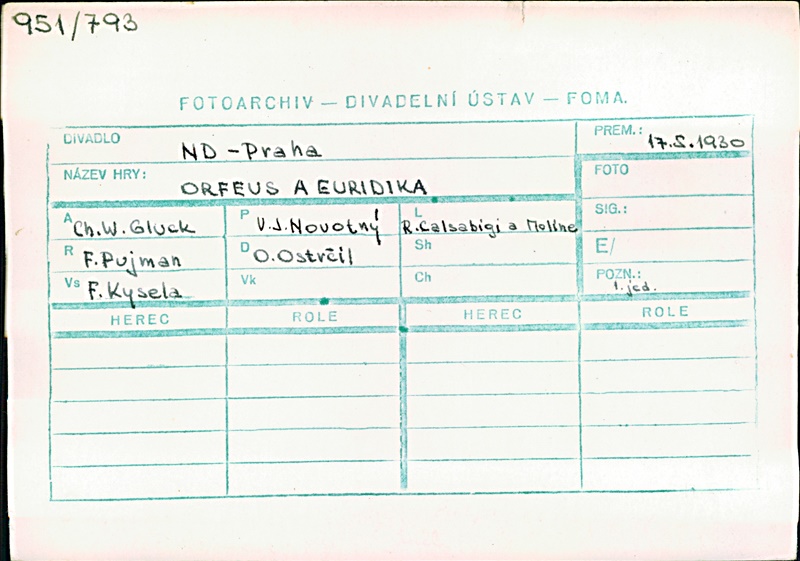 951/793
FOTOARCHIV — DIVADELNÍ ÚSTAV — FOMA.
DIVADLO ND - Praha PREM.: 17.5.1930
NÁZEV HRY: ORFEUS A EURIDIKA FOTO
A Ch.W. Gluck P V.J. Novotný L R. Calsabigi a Moline SIG.:
R F. Pujman D O. Ostrčil Sh E/
Vs F. Kysela Vk Ch POZN.: 1. jed.
HEREC ROLE HEREC ROLE